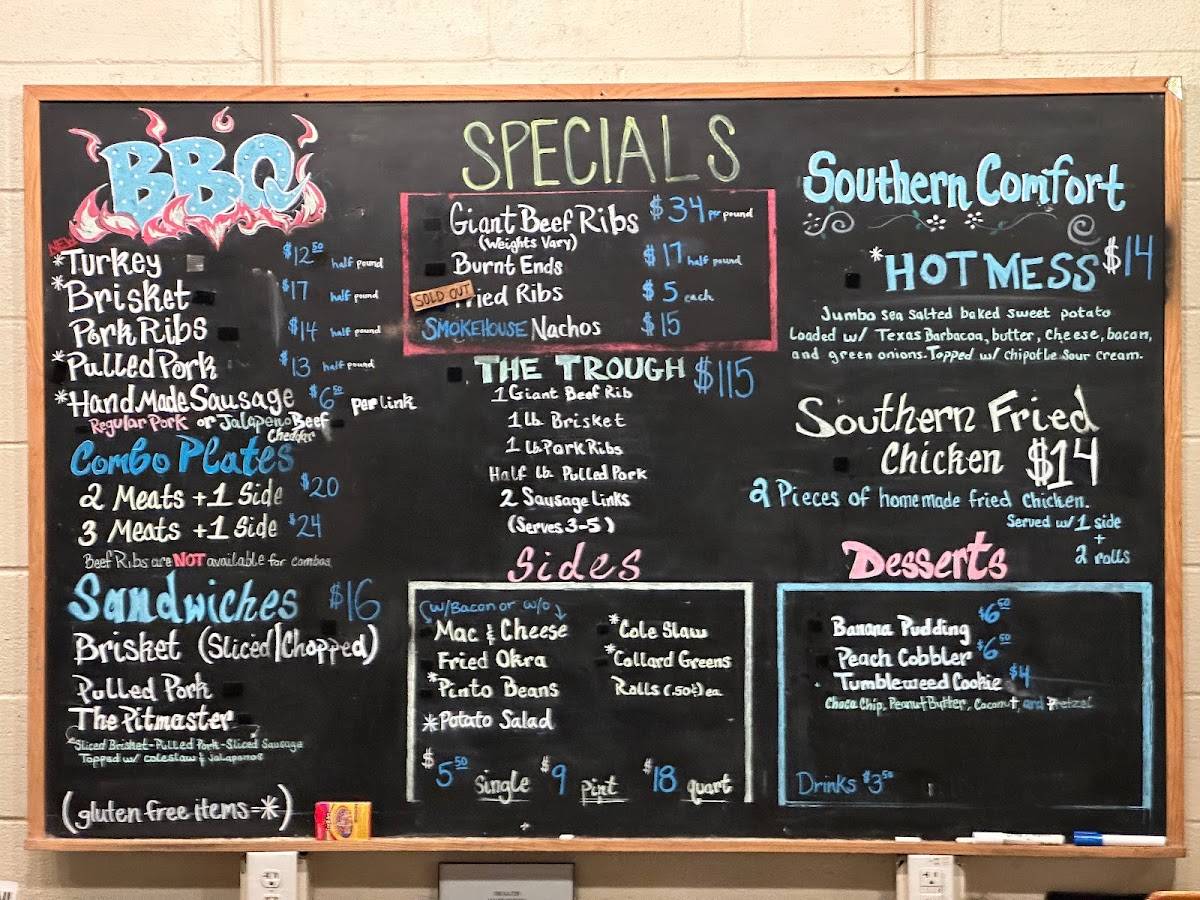 BBQ
NEW
*Turkey $12.50 half pound
*Brisket $17 half pound
Pork Ribs $14 half pound
*Pulled Pork $13 half pound
*Hand Made Sausage $6.50 per link
Regular Pork or Jalapeno Beef
Cheddar
Combo Plates
2 Meats + 1 Side $20
3 Meats + 1 Side $24
Beef Ribs are NOT available for combos
Sandwiches $16
Brisket (Sliced/Chopped)
Pulled Pork
The Pitmaster
*Sliced Brisket-Pulled Pork-Sliced Sausage
Topped w/ coleslaw & jalapenos
(gluten free items-*)
SPECIALS
Giant Beef Ribs $34 per pound
(Weights Vary)
Burnt Ends $17 half pound
SOLD OUT
ied Ribs $5 each
SMOKEHOUSE Nachos $15
THE TROUGH $115
1 Giant Beef Rib
1 lb Brisket
1 lb Pork Ribs
Half lb Pulled Pork
2 Sausage Links
(Serves 3-5)
Sides
(w/Bacon or w/o)
Mac & Cheese
Fried Okra
*Pinto Beans
*Potato Salad
*Cole Slaw
*Collard Greens
Rolls (.50¢) ea.
$5.50 Single $9 Pint $18 quart
Southern Comfort
*HOT MESS $14
Jumbo sea salted baked sweet potato
Loaded w/ Texas Barbacoa, butter, cheese, bacon,
and green onions. Topped w/ chipotle sour cream.
Southern Fried
Chicken $14
2 Pieces of homemade fried chicken.
Served w/ 1 side
+
2 rolls
Desserts
Banana Pudding $6.50
Peach Cobbler $6.50
Tumbleweed Cookie $4
Choco Chip, Peanut Butter, Coconut, and Pretzel
Drinks $3.50